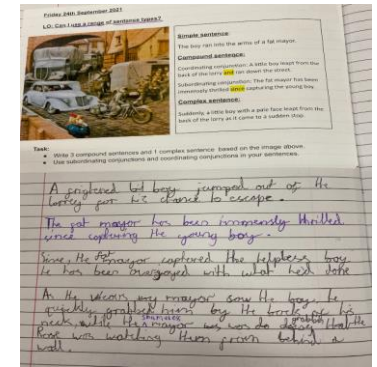 Friday 24th September 2021
LO: Can I use a range of sentence types?
Simple sentence:
The boy ran into the arms of a fat mayor.
Compound sentence:
Coordinating conjunction: A little boy leapt from the
back of the lorry and ran down the street.
Subordinating conjunction: The fat mayor has been
immensely thrilled since capturing the young boy.
Complex sentence:
Suddenly, a little boy with a pale face leapt from the
back of the lorry as it came to a sudden stop.
Task:
Write 3 compound sentences and 1 complex sentence based on the image above.
Use subordinating conjunctions and coordinating conjunctions in your sentences.
A boy jumped out of the
for his chance to escape.
The fat mayor has been thrilled
since capturing the young boy.
Since, the fat mayor captured the helpless boy,
he has been with what he'd done
As the mayor saw the boy, he
quickly grabbed him by the back of his
neck, while the mayor was
was watching them from behind a
wall.